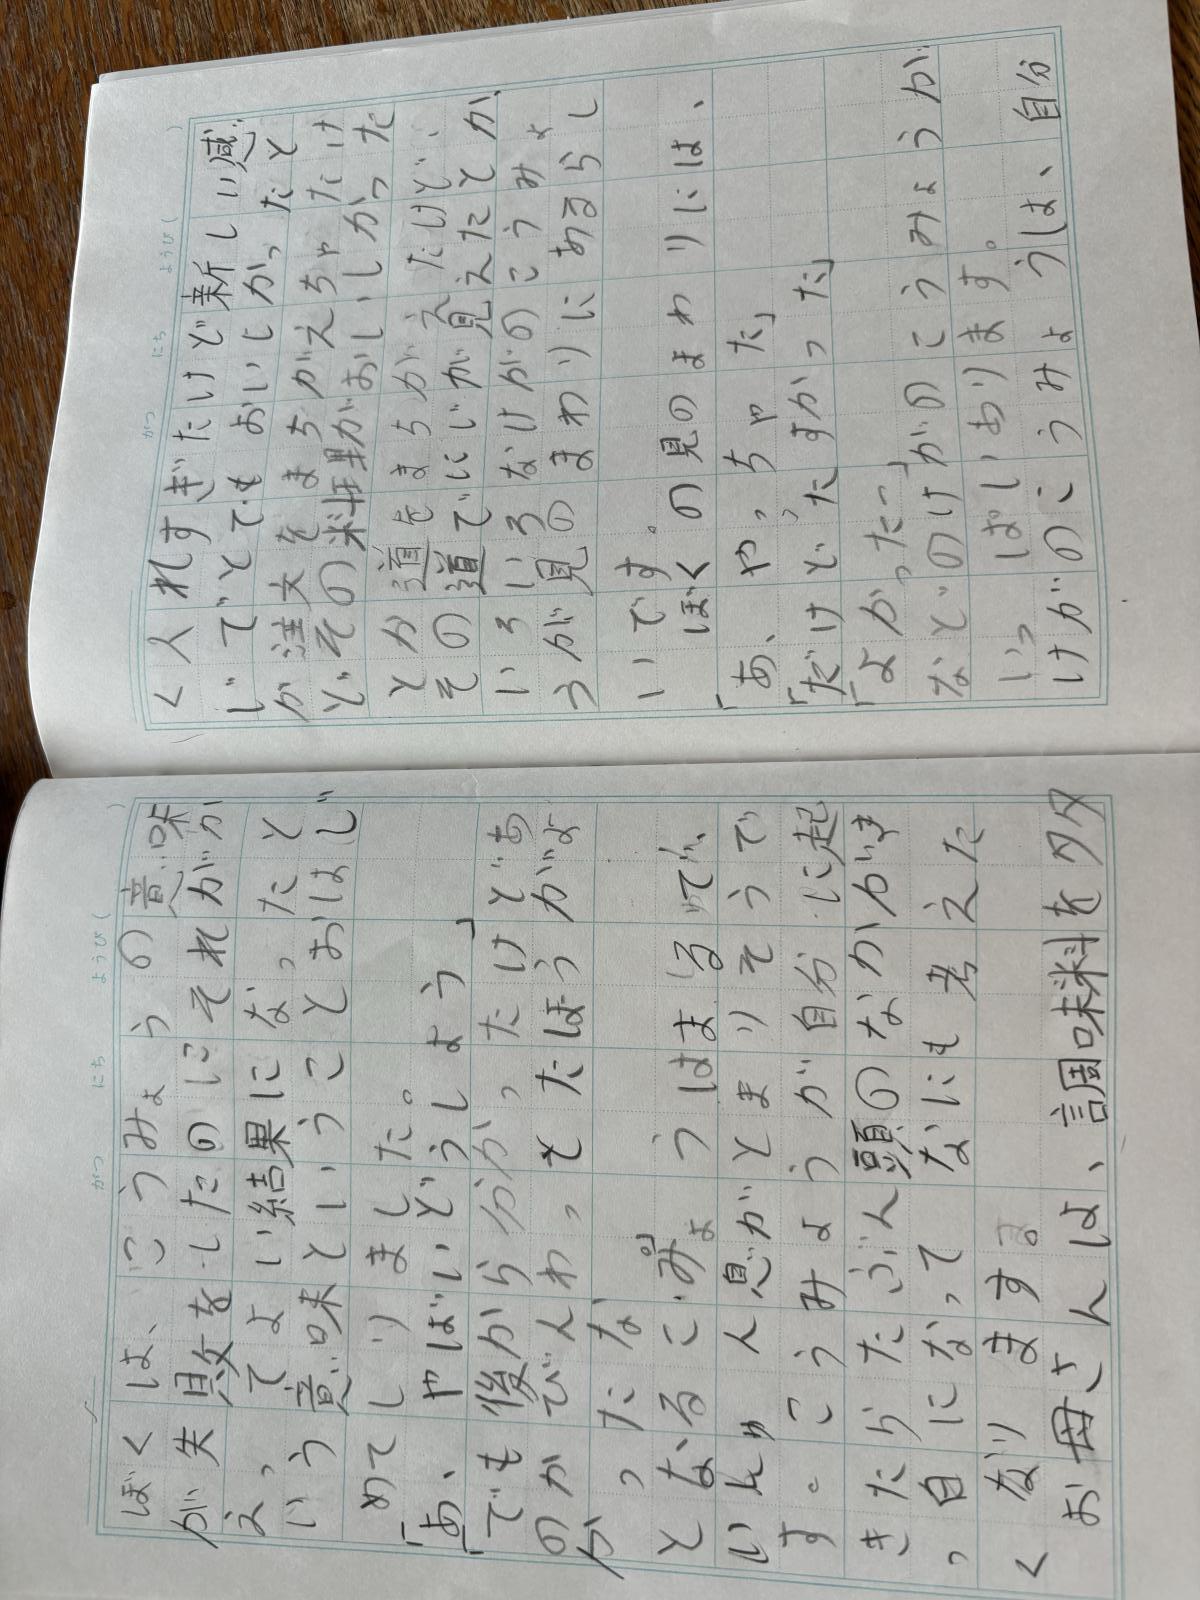 ぼくは、こうみょうの意味
が失敗をしたのにそれがか
えってよい結果になったと
いう意味ということおはじ
めてしりました。
「あ、やばいどうしよう」
でも後から分かったけどあ
のかびんわっとたほうがよ
かったな
となるこ みょうはまるで、
いしゅん息がとまりそうで
す。こうみょうが自分に起
きたらたぶん頭のなかがま
っ白になってなにも考えた
くなります
お母さんは、調味料をタタ
く入れすぎたけど新しい感
じでとてもおいしかっただと
か注文をまちがえちゃたけ
どその料理がおいしかった
とか道をまちがえたけど、
その道でにじが見えたとか、
いろいろなけがのこうみょ
うが見のまわりにあるらし
いです。
ぼくの見のまわりには、
「あ、やっちゃた」
「だけどたすかった」
「よかったー」
などのけがのこうみょうが
いっぱいあります。
けがのこうみょうは、自分